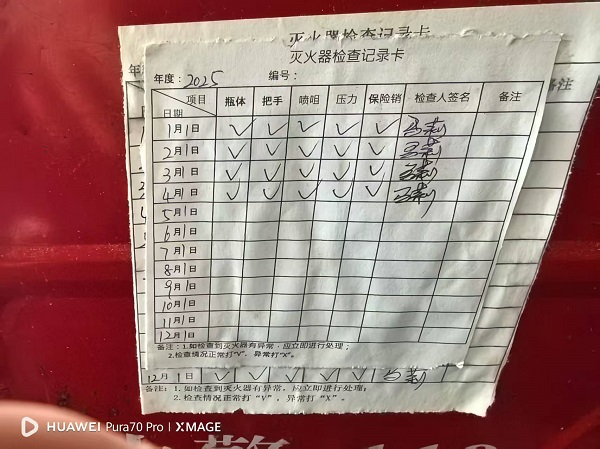 灭火器检查记录卡
灭火器检查记录卡
年度：2025 编号：
项目 瓶体 把手 喷咀 压力 保险销 检查人签名 备注
日期
1月1日 ✓ ✓ ✓ ✓ ✓ 马莉
2月1日 ✓ ✓ ✓ ✓ ✓ 马莉
3月1日 ✓ ✓ ✓ ✓ ✓ 马莉
4月1日 ✓ ✓ ✓ ✓ ✓ 马莉
5月1日
6月1日
7月1日
8月1日
9月1日
10月1日
11月1日
备注：1.如检查到灭火器有异常，应立即进行处理；
2.检查情况正常打“V”，异常打“X”。
12月1日 ✓ ✓ ✓ ✓ ✓ 马莉
备注：1. 如检查到灭火器有异常，应立即进行处理；
2. 检查情况正常打“V”，异常打“X”。
HUAWEI Pura70 Pro | XMAGE